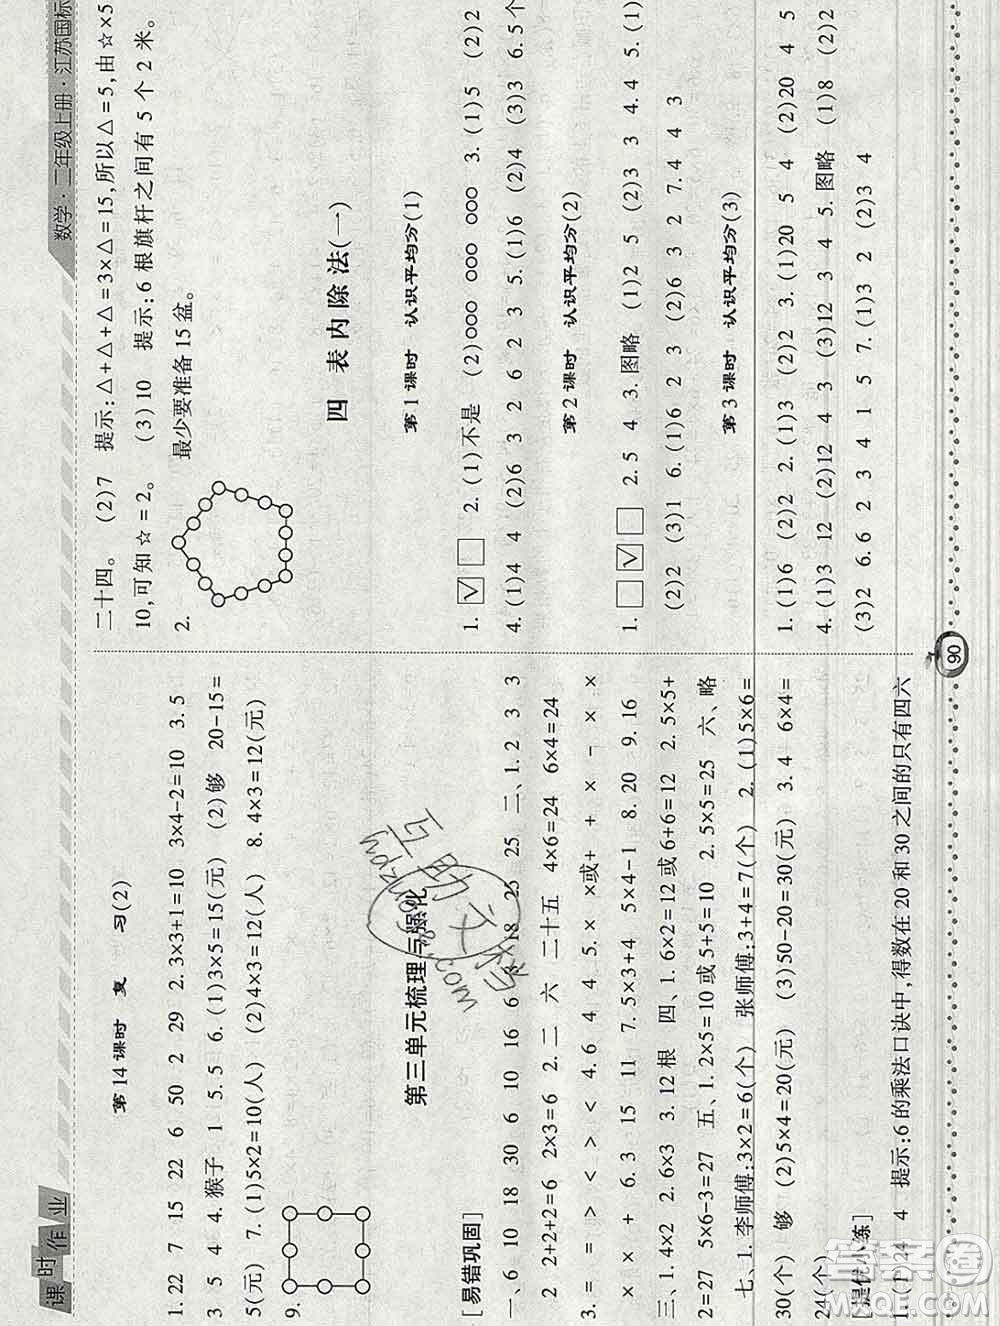 课时作业
数学·二年级上册·江苏国标
第14课时 复 习(2)
1. 22 7 15 22 6 50 2 29 2. 3×3+1=10 3×4-2=10 3. 5
3 5 4 4. 猴子 1 5. 5 6. (1)3×5=15(元) (2)够 20-15=
5(元) 7. (1)5×2=10(人) (2)4×3=12(人) 8. 4×3=12(元)
9.
第三单元梳理与强化
[易错巩固]
一、6 10 18 30 6 10 16 6 3 18 25 25 二、1. 2 3 3
2 2+2+2=6 2×3=6 2. 二 六 二十五 4×6=24 6×4=24
3. = = > < > < 4. 6 4 4 5. × ×或+ + × - × ×
× × + 6. 3 15 11 7. 5×3+4 5×4-1 8. 20 9. 16
三、1. 4×2 2. 6×3 3. 12根 四、1. 6×2=12或6+6=12 2. 5×5+
2=27 5×6-3=27 五、1. 2×5=10或5+5=10 2. 5×5=25 六、略
七、1. 李师傅:3×2=6(个) 张师傅:3+4=7(个) 2. (1)5×6=
30(个) 够 (2)5×4=20(元) (3)50-20=30(元) 3. 4 6×4=
24(个)
[提优小练]
1. (1)24 4 提示:6的乘法口诀中,得数在20和30之间的只有四六
二十四。 (2)7 提示:△+△+△=3×△=15,所以△=5,由☆×5
10,可知☆=2。 (3)10 提示:6根旗杆之间有5个2米。
2. 最少要准备15盆。
四 表内除法(一)
第1课时 认识平均分(1)
1. √ 2. (1)不是 (2)○○○ ○○○ ○○○ 3. (1)5 (2)2
4. (1)4 4 (2)6 3 2 6 2 3 5. (1)6 (2)4 (3)3 6. 5个
第2课时 认识平均分(2)
1. √ 2. 5 4 3. 图略 (1)2 5 (2)3 3 4. 4 5. (1)
(2)2 (3)1 6. (1)6 2 3 (2)6 3 2 7. 4 4 3
第3课时 认识平均分(3)
1. (1)6 (2)2 2. (1)3 (2)2 3. (1)20 5 4 (2)20 4 5
4. (1)3 12 (2)12 4 3 (3)12 3 4 5. 图略 (1)8 (2)2
(3)2 6. 6 2 3 4 1 5 7. (1)3 2 (2)3 4
90
互助文库
hdzuoye.com
答案圈
MXQE.COM